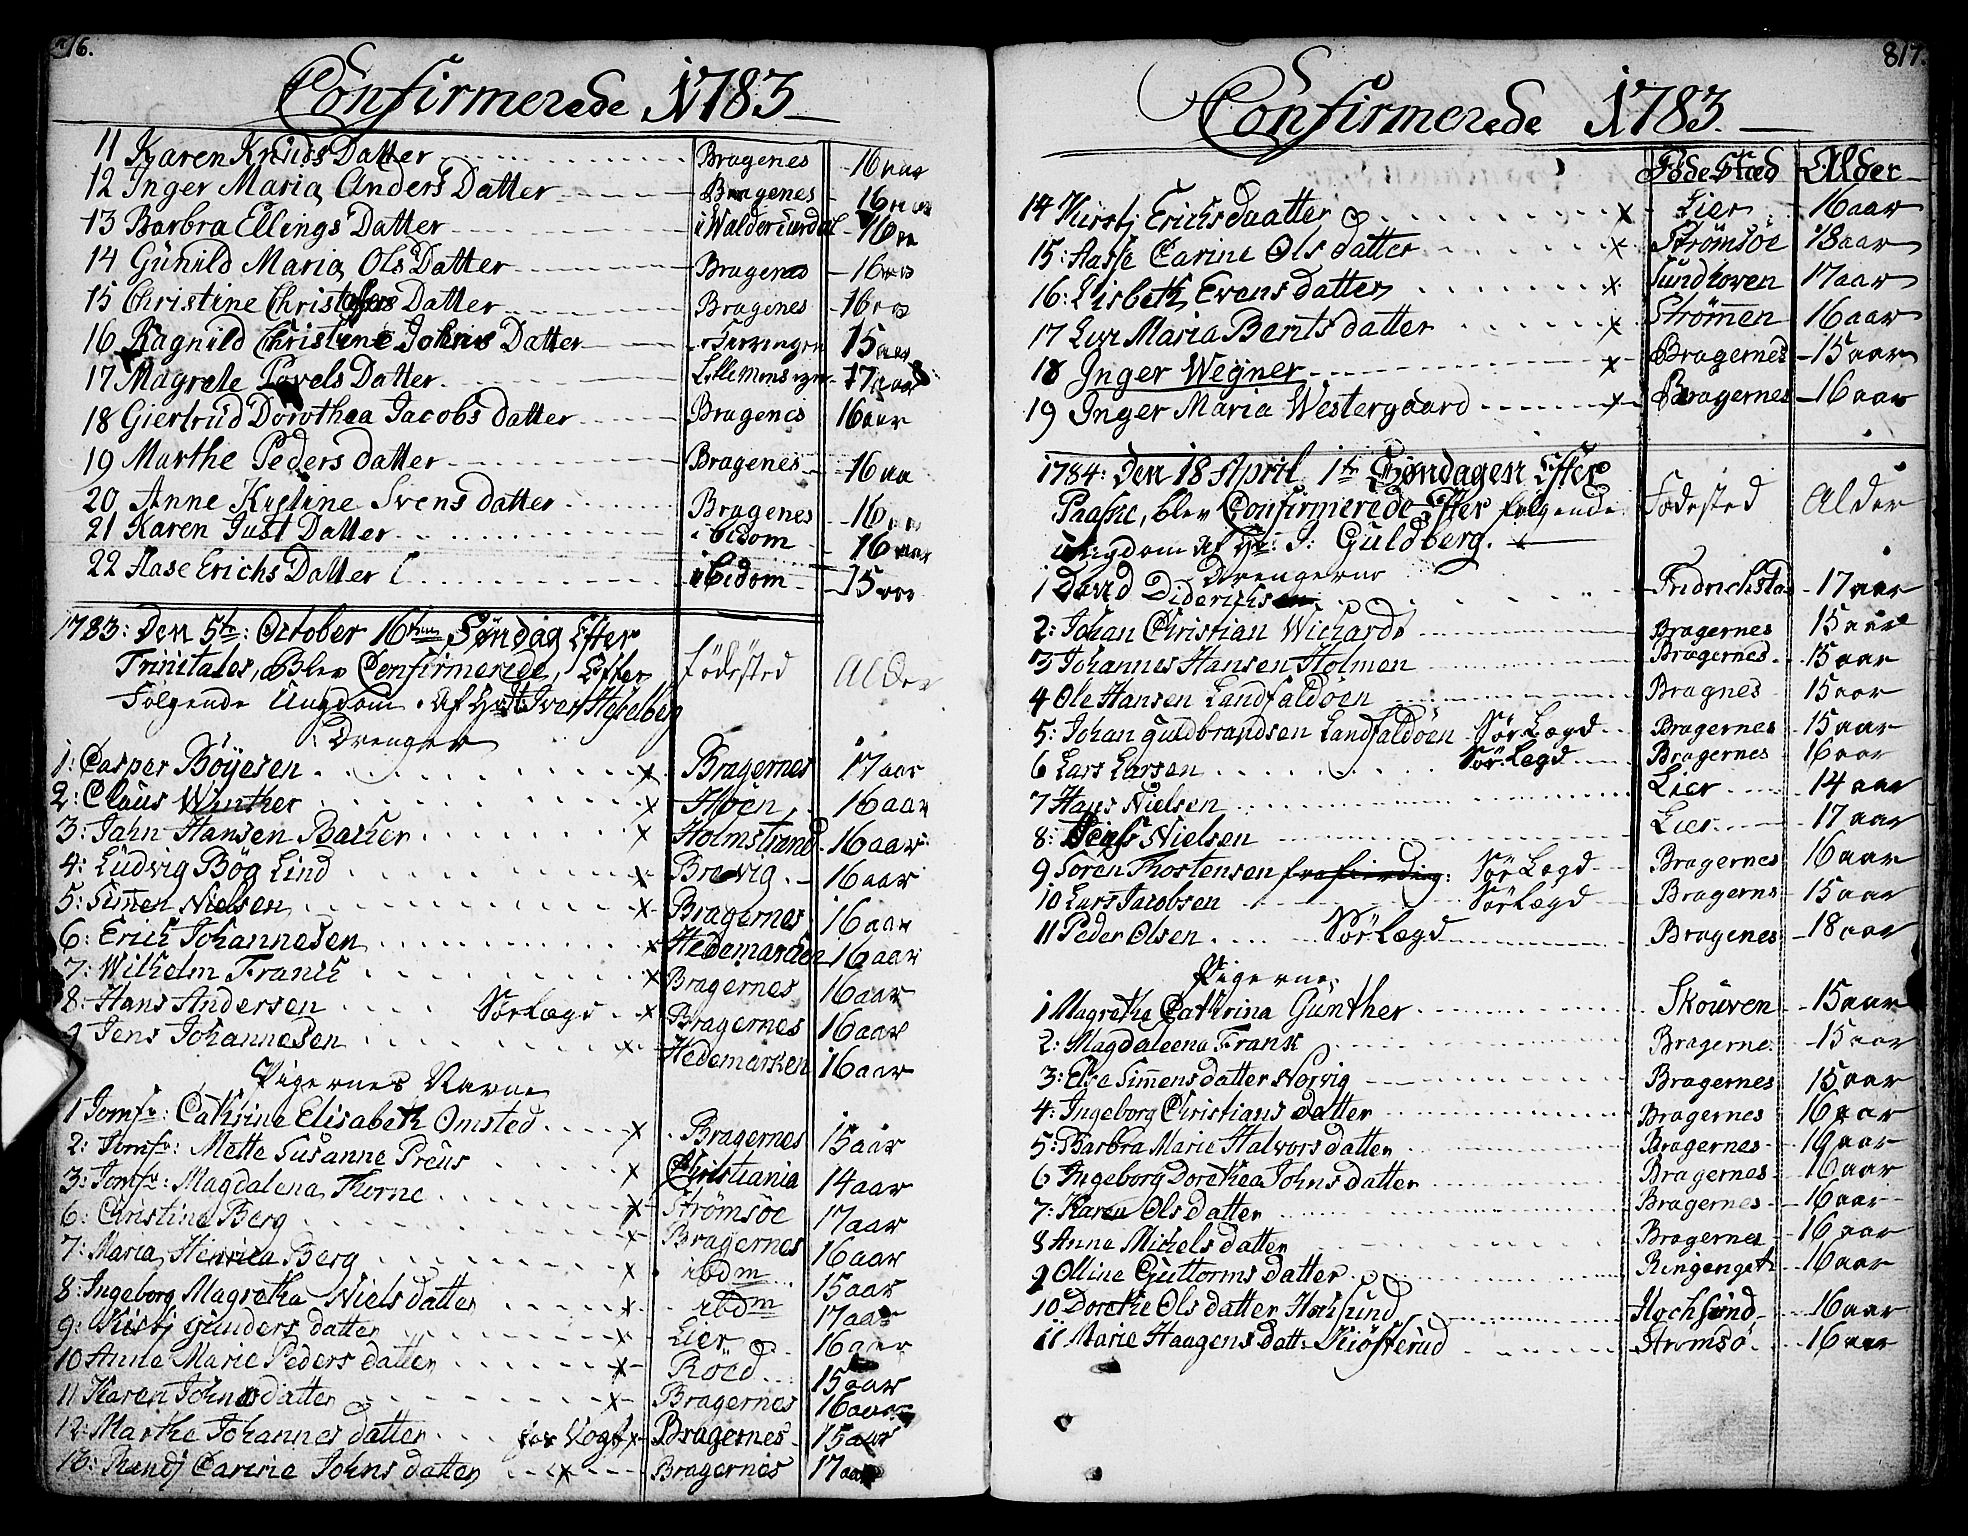 816.
Confirmerede 1783
11 Karen Knuds Datter Bragenes 16 aar
12 Inger Maria Anders Datter Bragenes 16 aar
13 Barbra Ellings Datter i 16 aa
14 Gunild Maria Ols Datter Bragenes 16 aa
15 Christine Christofers Datter Bragenes 16 aa
16 Ragnild Christine Johns Datter 15 aar
17 Magrete Povels Datter 17 aar
18 Giertrud Dorothea Jacobs datter Bragenes 16 aar
19 Marthe Peders datter Bragenes 16 aa
20 Anne Kirstine Svens datter Bragenes 16 aa
21 Karen Just Datter ibidem 16 aar
22 Aase Erichs Datter ibidem 15 aar
1783: Den 5te: October 16ten Søndag Efter
Trinitates, Blev Confirmerede, Efter Fødested Alder
Følgende Ungdom. Af Hr: Iver Heselberg
Drenger
1: Casper Böyesen x Bragernes 17 aar
2: Claus Winther x Höen 16 aar
3: Jahn Hansen Backer x Holmstrand 16 aar
4: Ludvig Bög Lind x Brevig 16 aar
5: Simen Nielsen x Bragernes 16 aar
6: Erich Johannesen x Hedemarcken 16 aar
7: Wilhelm Franck x Bragernes 16 aar
8: Hans Andersen Sör Lægd x Bragernes 16 aar
9 Jens Johannesen x Hedemarken 16 aar
Pigernes Navne
1 Jomfr: Cathrine Elisabeth Omsted x Bragernes 15 aar
2: Jomfr: Mette Susanne Preus x Christiania 14 aar
3: Jomfr: Magdalena Thorne x Strömsöe 17 aar
6: Christine Berg x Bragernes 16 aar
7: Maria Henrica Berg x ibdm 15 aar
8: Ingeborg Magretha Niels datter x ibdm 17 aar
9: Kistj Gunders datter x Lier 16 aar
10 Anne Marie Peders datter x Röed 15 aar
11 Karen Johns datter x Bragernes 16 aar
12: Marthe Johannes datter Vogt x Bragernes 15 aar
13: Randj Carine Johns datter x Bragernes 17 aar
817.
Confirmerede 1783.
Föde Stæd Alder
14 Kirstj Erichsdaatter x Lier 16 aar
15: Aasse Carine Ols datter x Strömsöe 18 aar
16: Lisbeth Evens datter x Sundhoven 17 aar
17 Maria Bents datter x Strömen 16 aar
18 Inger Wegner x Bragernes 15 aar
19 Inger Maria Westergaard x Bragernes 16 aar
1784: Den 18 April 1te Søndagen Efter
Paaske, blev Confirmerede Efter følgende Fødested Alder
Ungdom af Hr: J: Guldberg.
Drengerne
1 David Diderichsen Fridrichstad 17 aar
2: Johan Christian Wichards Bragernes 15 aar
3 Johannes Hansen Holmen Bragernes 15 aar
4 Ole Hansen Landfaldöen Bragnes 15 aar
5: Johan Guldbrandsen Landfaldöen Sör Lægd Bragernes 15 aar
6 Lars Larsen Sör Lægd Bragernes 16 aar
7 Hans Nielsen Lier 14 aar
8: Nielsen Lier 17 aar
9 Søren Thostensen Sör Lægd Bragernes 16 aar
10 Lars Jacobsen Sör Lægd Bragernes 15 aar
11 Peder Olsen Sör Lægd Bragenes 18 aar
Pigerne
1 Magretha Cathrina Gunther Skouven 15 aar
2: Magdaleena Frank Bragerne. 15 aar
3: Else Simens datter Norvig Bragernes 15 aar
4: Ingeborg Christians datter Bragernes 16 aar
5: Barbra Marie Halvors datter Bragernes 19 aar
6 Ingeborg Dorethea Johns datter Bragernes 16 aar
7: Karen Ols datter Bragernes 16 aar
8 Anna Michels datter Bragernes 16 aar
9 Olline Guttorms datter 16 aar
10 Dorethe Ols datter Hocksund Hochsund 16 aar
11 Marie Haagens datt: Kiösterud Strömsö 16 aar